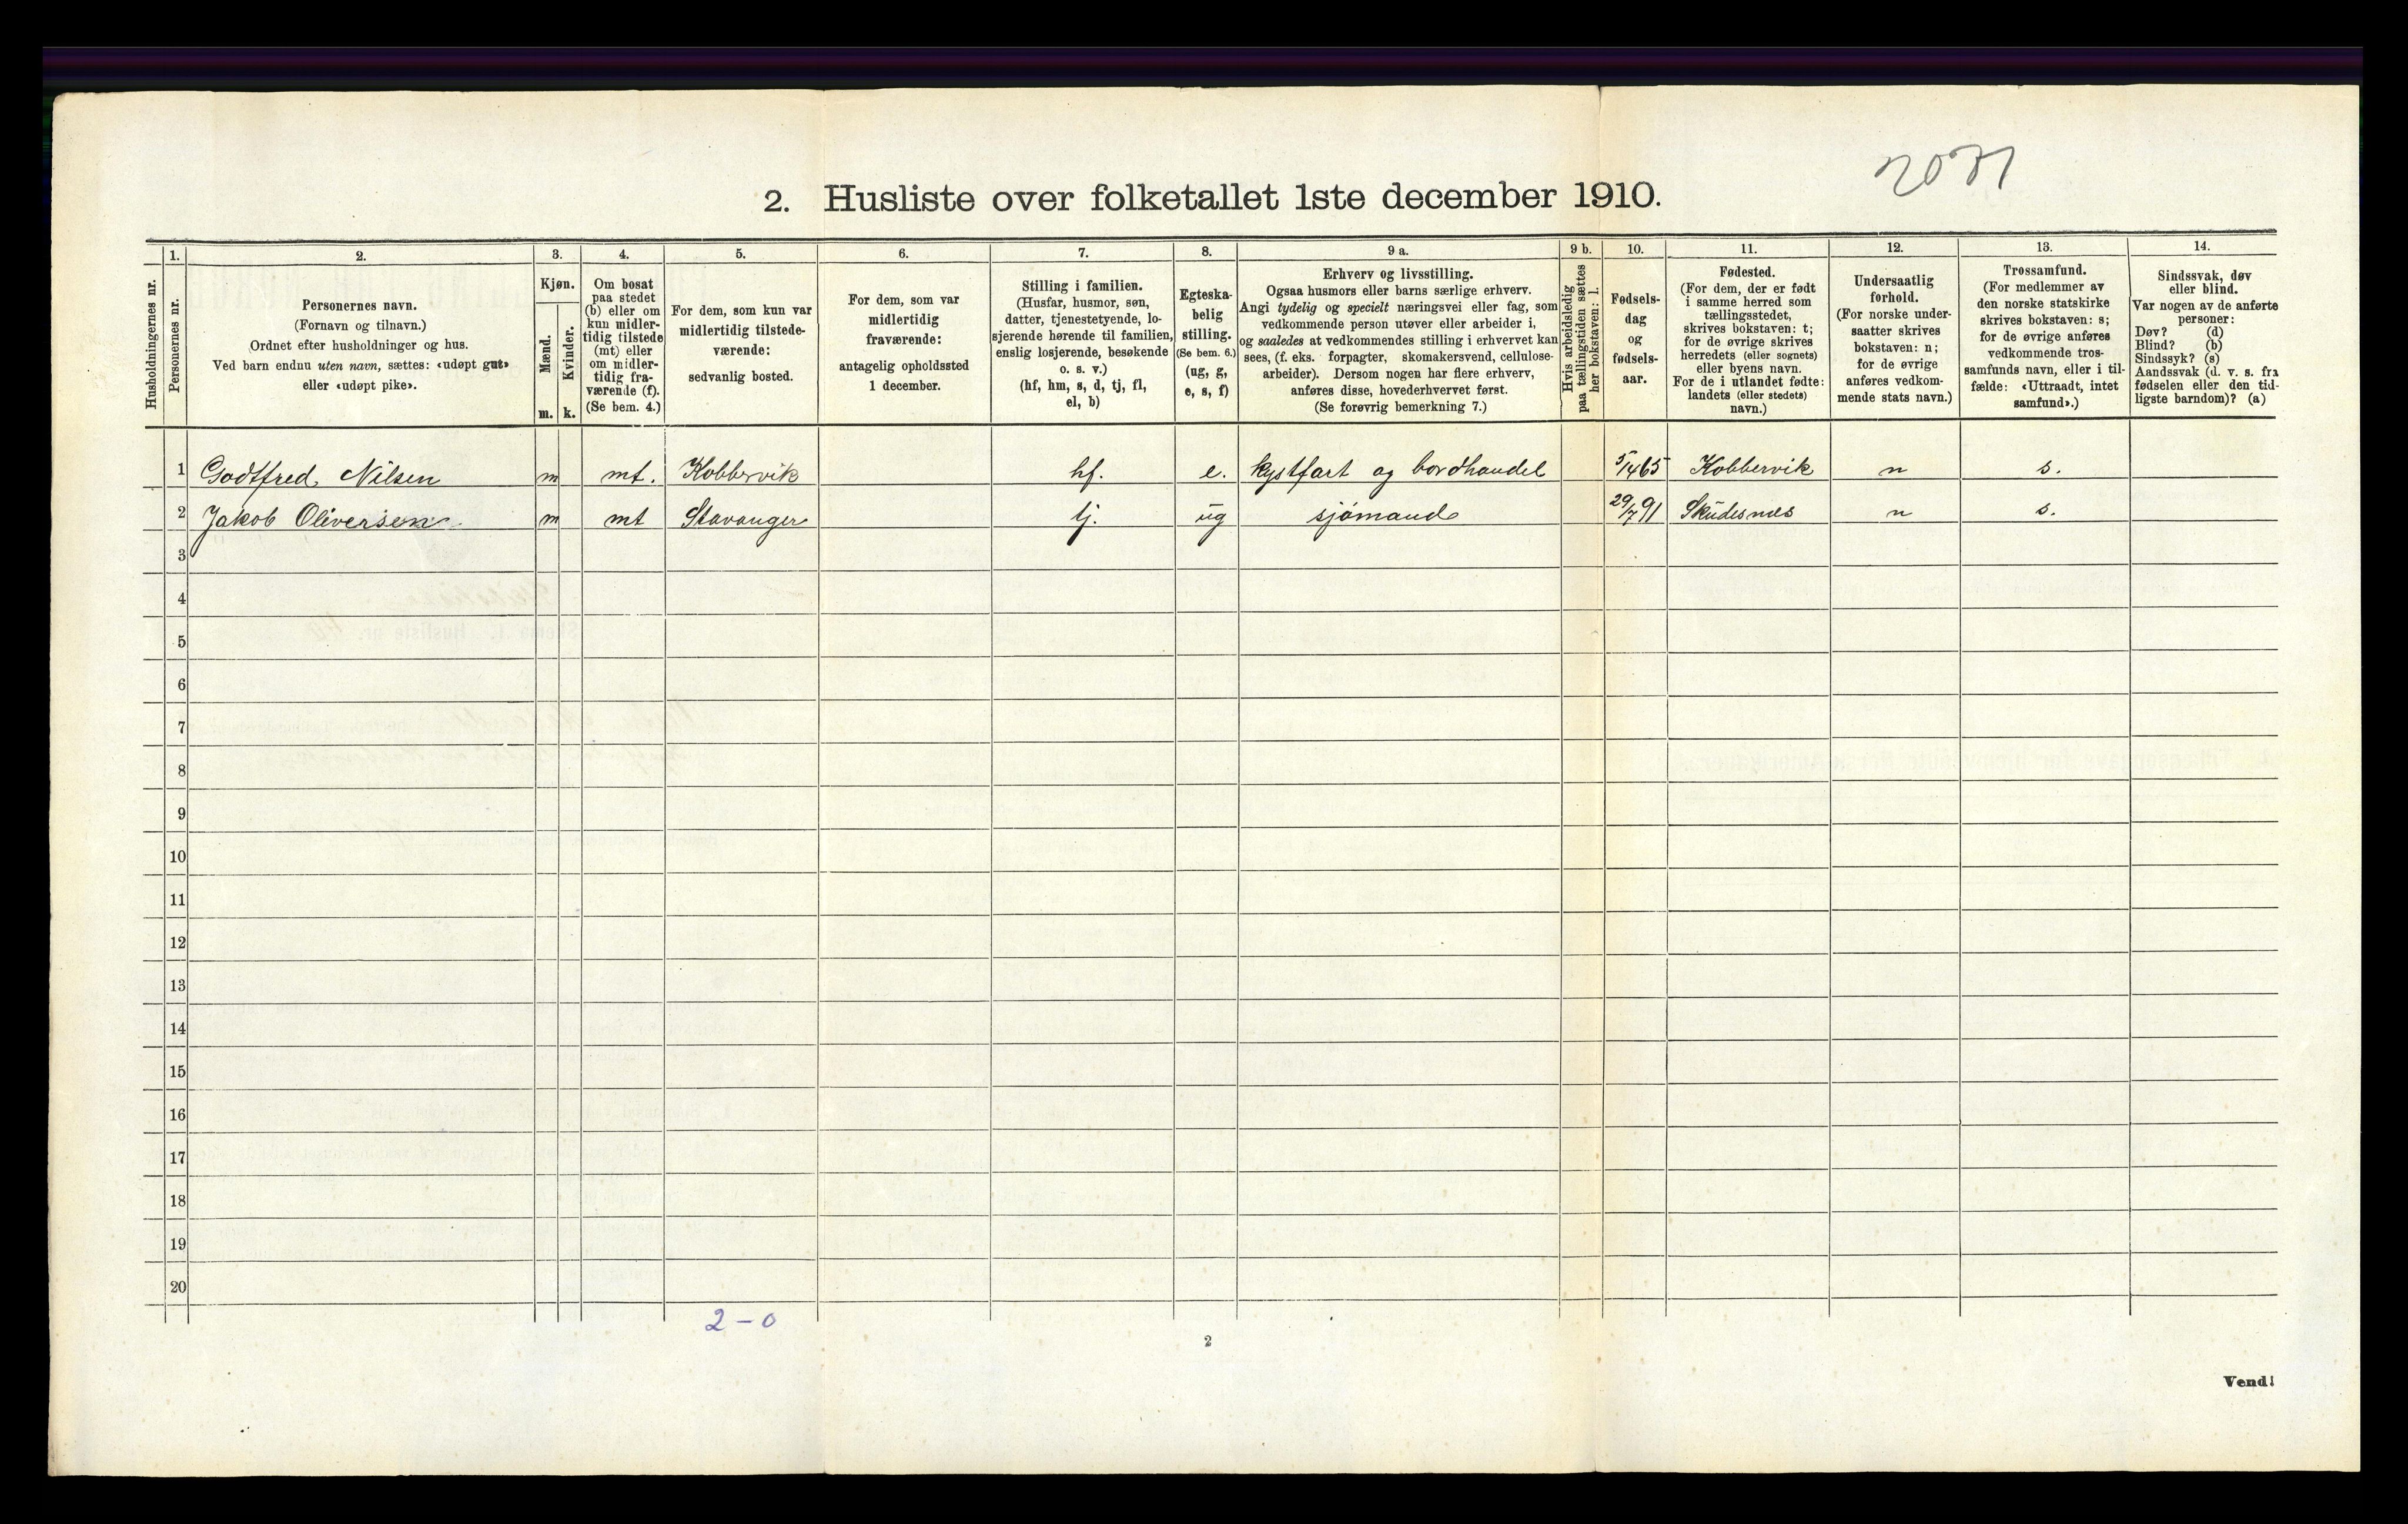 2071
2. Husliste over folketallet 1ste december 1910.
Husholdningernes nr.
1.
Personernes nr.
2.
Personernes navn.
(Fornavn og tilnavn.)
Ordnet efter husholdninger og hus.
Ved barn endnu uten navn, sættes: «udøpt gut»
eller «udøpt pike».
3.
Kjøn.
Mænd.
Kvinder.
m. k.
4.
Om bosat
paa stedet
(b) eller om
kun midler-
tidig tilstede
(mt) eller
om midler-
tidig fra-
værende (f).
(Se bem. 4.)
5.
For dem, som kun var
midlertidig tilstede-
værende:
sedvanlig bosted.
6.
For dem, som var
midlertidig
fraværende:
antagelig opholdssted
1 december.
7.
Stilling i familien.
(Husfar, husmor, søn,
datter, tjenestetyende, lo-
sjerende hørende til familien,
enslig losjerende, besøkende
o. s. v.)
(hf, hm, s, d, tj, fl,
el, b)
8.
Egteska-
belig
stilling.
(Se bem. 6.)
(ug, g,
e, s, f)
9 a.
Erhverv og livsstilling.
Ogsaa husmors eller barns særlige erhverv.
Angi tydelig og specielt næringsvei eller fag, som
vedkommende person utøver eller arbeider i,
og saaledes at vedkommendes stilling i erhvervet kan
sees, (f. eks. forpagter, skomakersvend, cellulose-
arbeider). Dersom nogen har flere erhverv,
anføres disse, hovederhvervet først.
(Se forøvrig bemerkning 7.)
9 b.
Hvis arbeidsledig
paa tællingstiden sættes
her bokstaven: l.
10.
Fødsels-
dag
og
fødsels-
aar.
11.
Fødested.
(For dem, der er født
i samme herred som
tællingsstedet,
skrives bokstaven: t;
for de øvrige skrives
herredets (eller sognets)
eller byens navn.
For de i utlandet fødte:
landets (eller stedets)
navn.)
12.
Undersaatlig
forhold.
(For norske under-
saatter skrives
bokstaven: n;
for de øvrige
anføres vedkom-
mende stats navn.)
13.
Trossamfund.
(For medlemmer av
den norske statskirke
skrives bokstaven: s;
for de øvrige anføres
vedkommende tros-
samfunds navn, eller i til-
fælde: «Uttraadt, intet
samfund».)
14.
Sindssvak, døv
eller blind.
Var nogen av de anførte
personer:
Døv? (d)
Blind? (b)
Sindssyk? (s)
Aandssvak (d. v. s. fra
fødselen eller den tid-
ligste barndom)? (a)
1 Godtfred Nilsen m mt. Kobbervik hf. e. kystfart og bordhandel 5/4 65 Kobbervik n s.
2 Jakob Oliversen m mt Stavanger tj. ug sjømand 29/7 91 Skudesnes n s.
3
4
5
6
7
8
9
10
11
12
13
14
15
16
17
18
19
20
2 - 0
2
Vend!